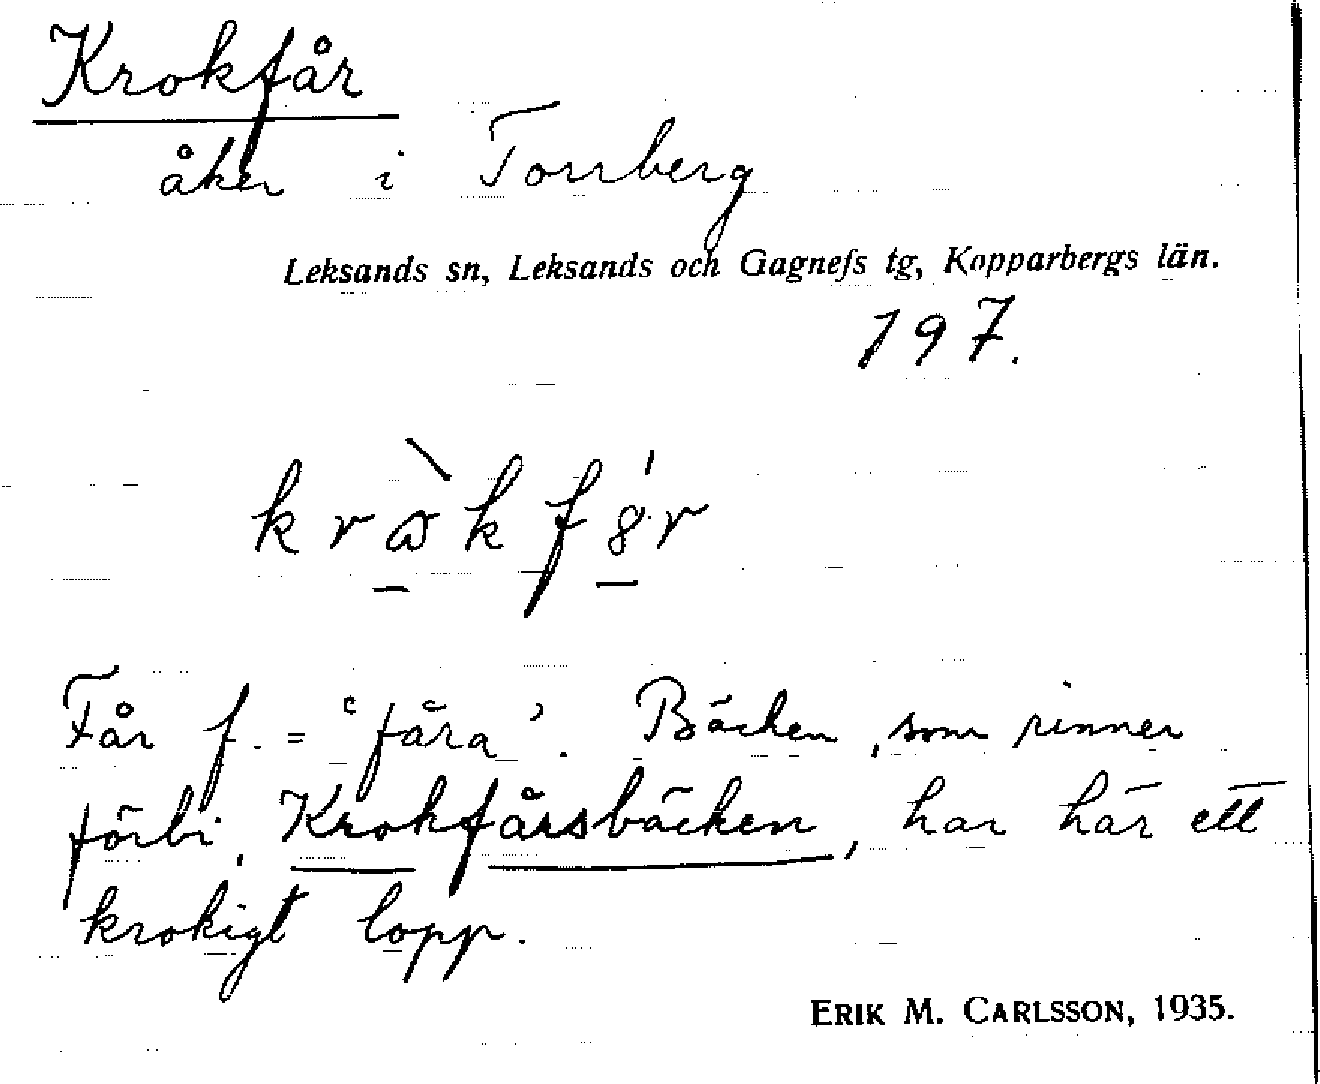 Krokfår
åker i Torrberg
Leksands sn, Leksands och Gagnefs tg, Kopparbergs län.
197.
Får f. = 'fåra'. Bäcken, som rinner
förbi, Krokfårsbäcken, har här ett
krokigt lopp.
ERIK M. CARLSSON, 1935.